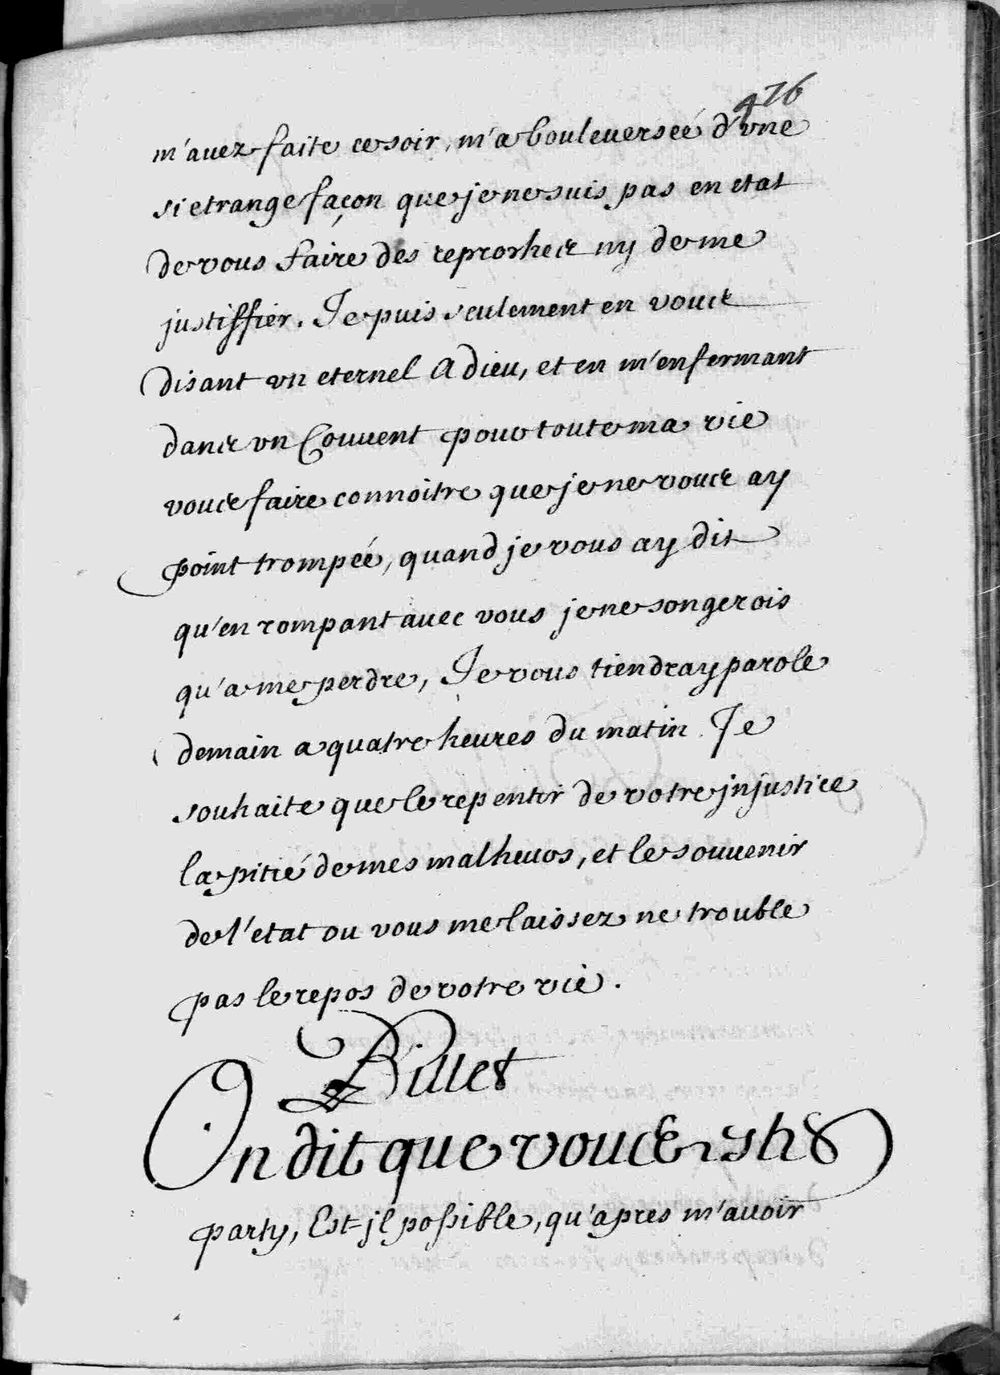 476
m'auez faite ce soir, m'a bouleuerseé d'vne
si etrange façon que je ne suis pas en etat
de vous faire des reproches ny de me
justiffier. Je puis seulement en vous
disant vn eternel Adieu, et en m'enfermant
dans vn Couuent pour toute ma vie
vous faire connoitre que je ne vous ay
point trompeé, quand je vous ay dit
qu'en rompant auec vous je ne songerois
qu'a me perdre, Je vous tiendray parole
demain a quatre heures du matin. Je
souhaite que le repentir de votre jnjustice
la pitié de mes malheurs, et le souuenir
de l'etat ou vous me laissez ne trouble
pas le repos de votre vie.
Billet
On dit que vous estes
party, Est-jl possible, qu'apres m'auoir